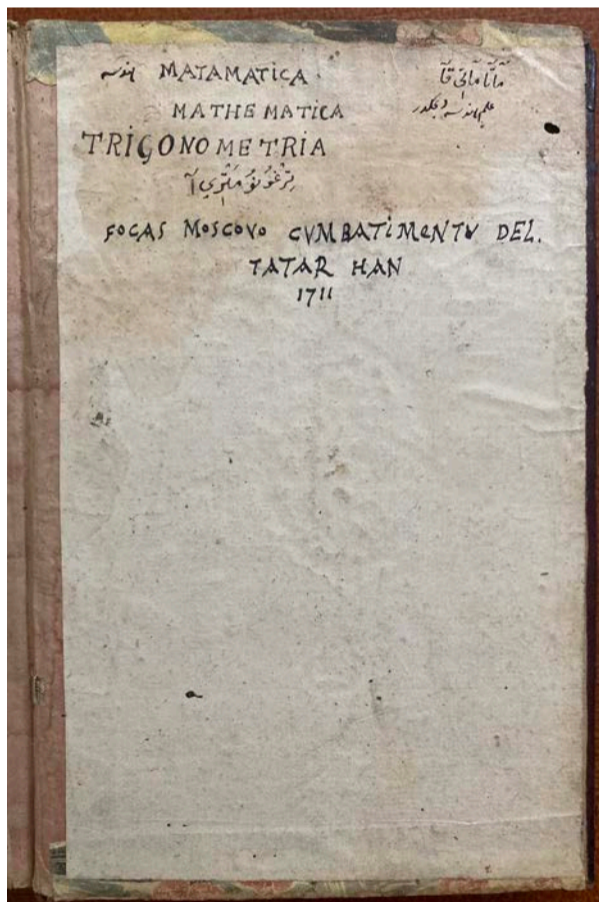 هندسه MATAMATICA ماتاماتىقا
MATHEMATICA علم هندسه ديمكدر
TRIGONOMETRIA
ترغونومتري آ
FOCAS MOSCOVO CVMBATIMENTV DEL.
TATAR HAN
1711